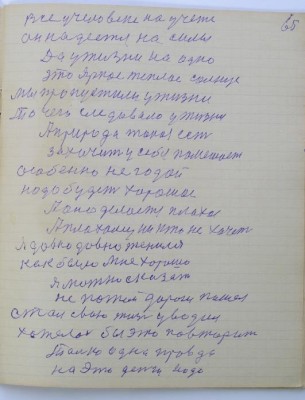 65
Все у человека на учете
он надеется на силы
Да у жизни на одно
это яркое теплое солнце
мы пропустили у жизни
То чего следовало у жизни
А природа такая есть
захочит у себя помешает
особенно не годой
надо будет хорошое
А оно делается плохое
А плохому ни кто не хочет
Я давно довно женился
как было мне хорошо
Я можно сказат
не по той дороги пошол
стал свою жизн уводит
хотелос бы это повторит
Толко одна правда
на это дети надо